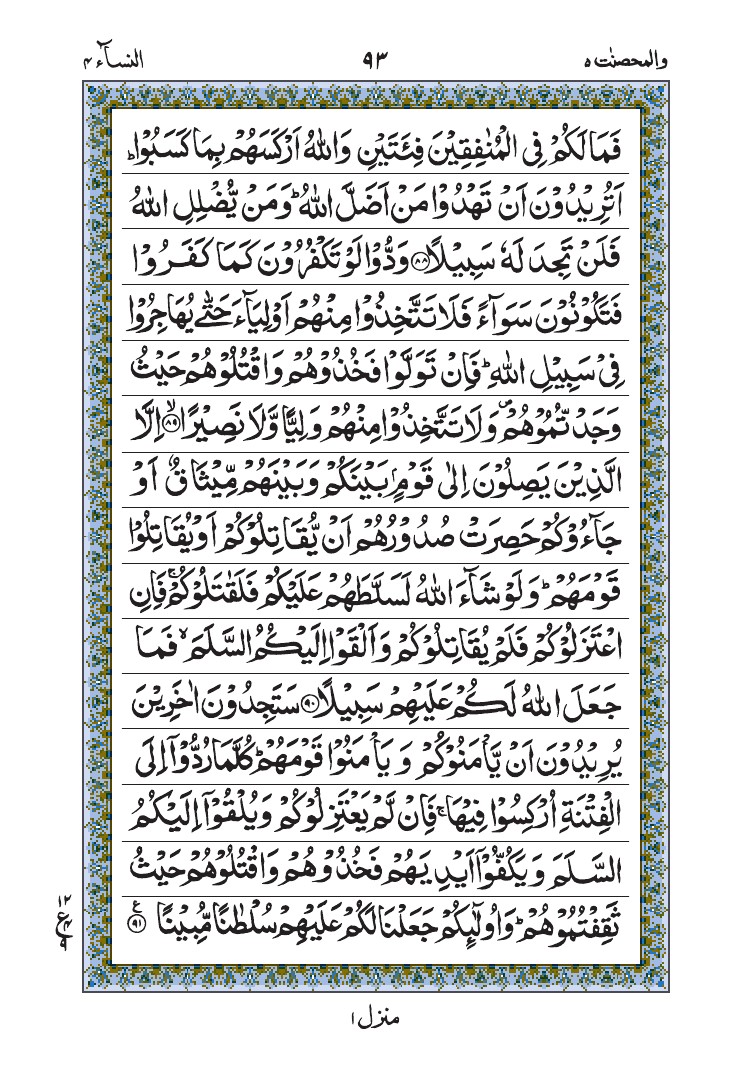 والمحصنٰت ٥
٩٣
النساۤء ٤
فَمَا لَكُمْ فِی الْمُنٰفِقِیْنَ فِئَتَیْنِ وَاللّٰهُ اَرْكَسَهُمْ بِمَا كَسَبُوْا ؕ
اَتُرِیْدُوْنَ اَنْ تَهْدُوْا مَنْ اَضَلَّ اللّٰهُ ؕ وَمَنْ یُّضْلِلِ اللّٰهُ
فَلَنْ تَجِدَ لَهٗ سَبِیْلًا ﴿٨٨﴾ وَدُّوْا لَوْ تَكْفُرُوْنَ كَمَا كَفَرُوْا
فَتَكُوْنُوْنَ سَوَآءً فَلَا تَتَّخِذُوْا مِنْهُمْ اَوْلِیَآءَ حَتّٰی یُهَاجِرُوْا
فِیْ سَبِیْلِ اللّٰهِ ؕ فَاِنْ تَوَلَّوْا فَخُذُوْهُمْ وَاقْتُلُوْهُمْ حَیْثُ
وَجَدْتُّمُوْهُمْ ۪ وَلَا تَتَّخِذُوْا مِنْهُمْ وَلِیًّا وَّلَا نَصِیْرًا ﴿٨٩﴾ۙ اِلَّا
الَّذِیْنَ یَصِلُوْنَ اِلٰی قَوْمٍۭ بَیْنَكُمْ وَبَیْنَهُمْ مِّیْثَاقٌ اَوْ
جَآءُوْكُمْ حَصِرَتْ صُدُوْرُهُمْ اَنْ یُّقَاتِلُوْكُمْ اَوْ یُقَاتِلُوْا
قَوْمَهُمْ ؕ وَلَوْ شَآءَ اللّٰهُ لَسَلَّطَهُمْ عَلَیْكُمْ فَلَقٰتَلُوْكُمْ ۚ فَاِنِ
اعْتَزَلُوْكُمْ فَلَمْ یُقَاتِلُوْكُمْ وَاَلْقَوْا اِلَیْكُمُ السَّلَمَ ۙ فَمَا
جَعَلَ اللّٰهُ لَكُمْ عَلَیْهِمْ سَبِیْلًا ﴿٩٠﴾ سَتَجِدُوْنَ اٰخَرِیْنَ
یُرِیْدُوْنَ اَنْ یَّاْمَنُوْكُمْ وَیَاْمَنُوْا قَوْمَهُمْ ؕ كُلَّمَا رُدُّوْۤا اِلَی
الْفِتْنَةِ اُرْكِسُوْا فِیْهَا ۚ فَاِنْ لَّمْ یَعْتَزِلُوْكُمْ وَیُلْقُوْۤا اِلَیْكُمُ
السَّلَمَ وَیَكُفُّوْۤا اَیْدِیَهُمْ فَخُذُوْهُمْ وَاقْتُلُوْهُمْ حَیْثُ
ثَقِفْتُمُوْهُمْ ؕ وَاُولٰٓئِكُمْ جَعَلْنَا لَكُمْ عَلَیْهِمْ سُلْطٰنًا مُّبِیْنًا ﴿٩١﴾ ع
١٢
ع
٤
٩
منزل ١